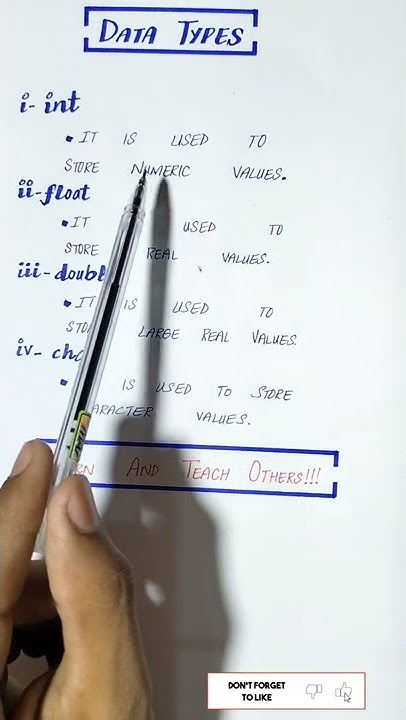 DATA TYPES
i- int
• IT IS USED TO
STORE NUMERIC VALUES.
ii-float
• IT USED TO
STORE REAL VALUES.
iii-doubl
• IT IS USED TO
STO LARGE REAL VALUES.
iv- cha
• IS USED TO STORE
ARACTER VALUES.
RN AND TEACH OTHERS!!!
DON'T FORGET
TO LIKE